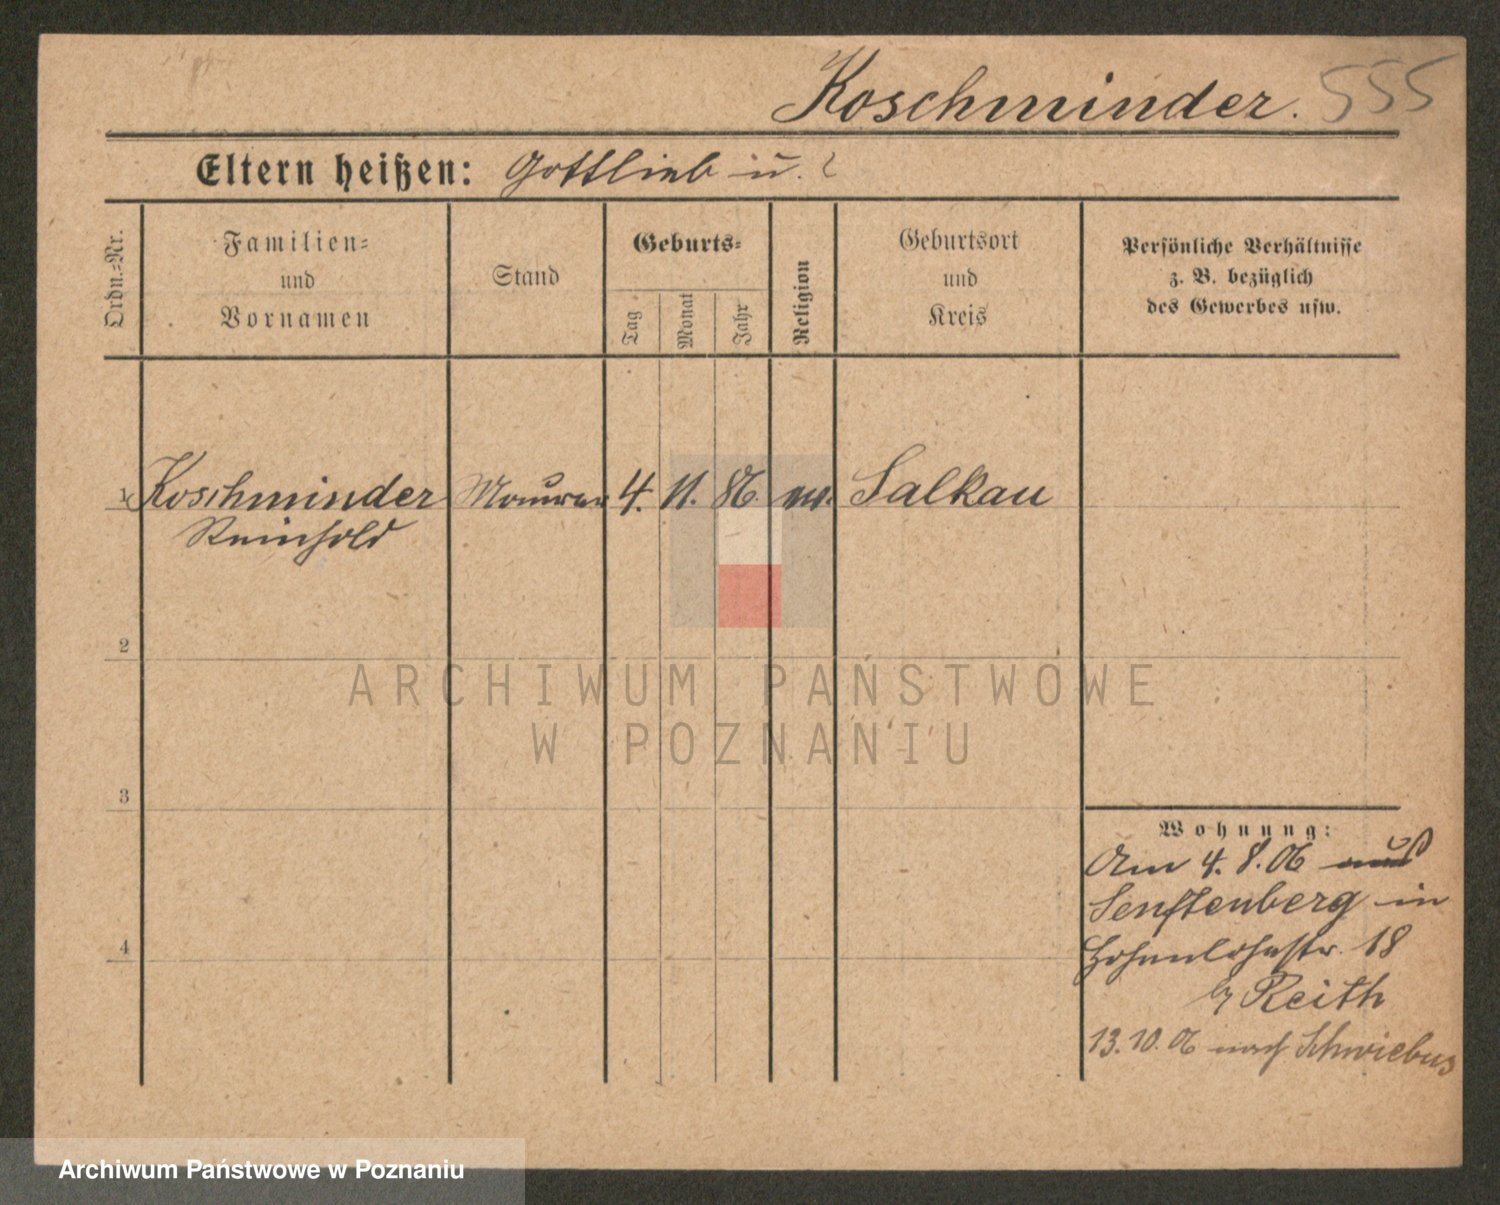 Koschminder. 555
Eltern heißen: Gottlieb u. ?
Ordn.=Nr.
Familien=
und
Vornamen
Stand
Geburts=
Tag
Monat
Jahr
Religion
Geburtsort
und
Kreis
Persönliche Verhältnisse
z. B. bezüglich
des Gewerbes usw.
1 Koschminder Maurer 4. 11. 86. Salkau
Reinhold
2
ARCHIWUM PAŃSTWOWE
W POZNANIU
3
Wohnung:
Am 4. 8. 06 aus
Senftenberg in
Hohenlohestr. 18
4
b/ Reith
13. 10. 06 nach Schwiebus
Archiwum Państwowe w Poznaniu